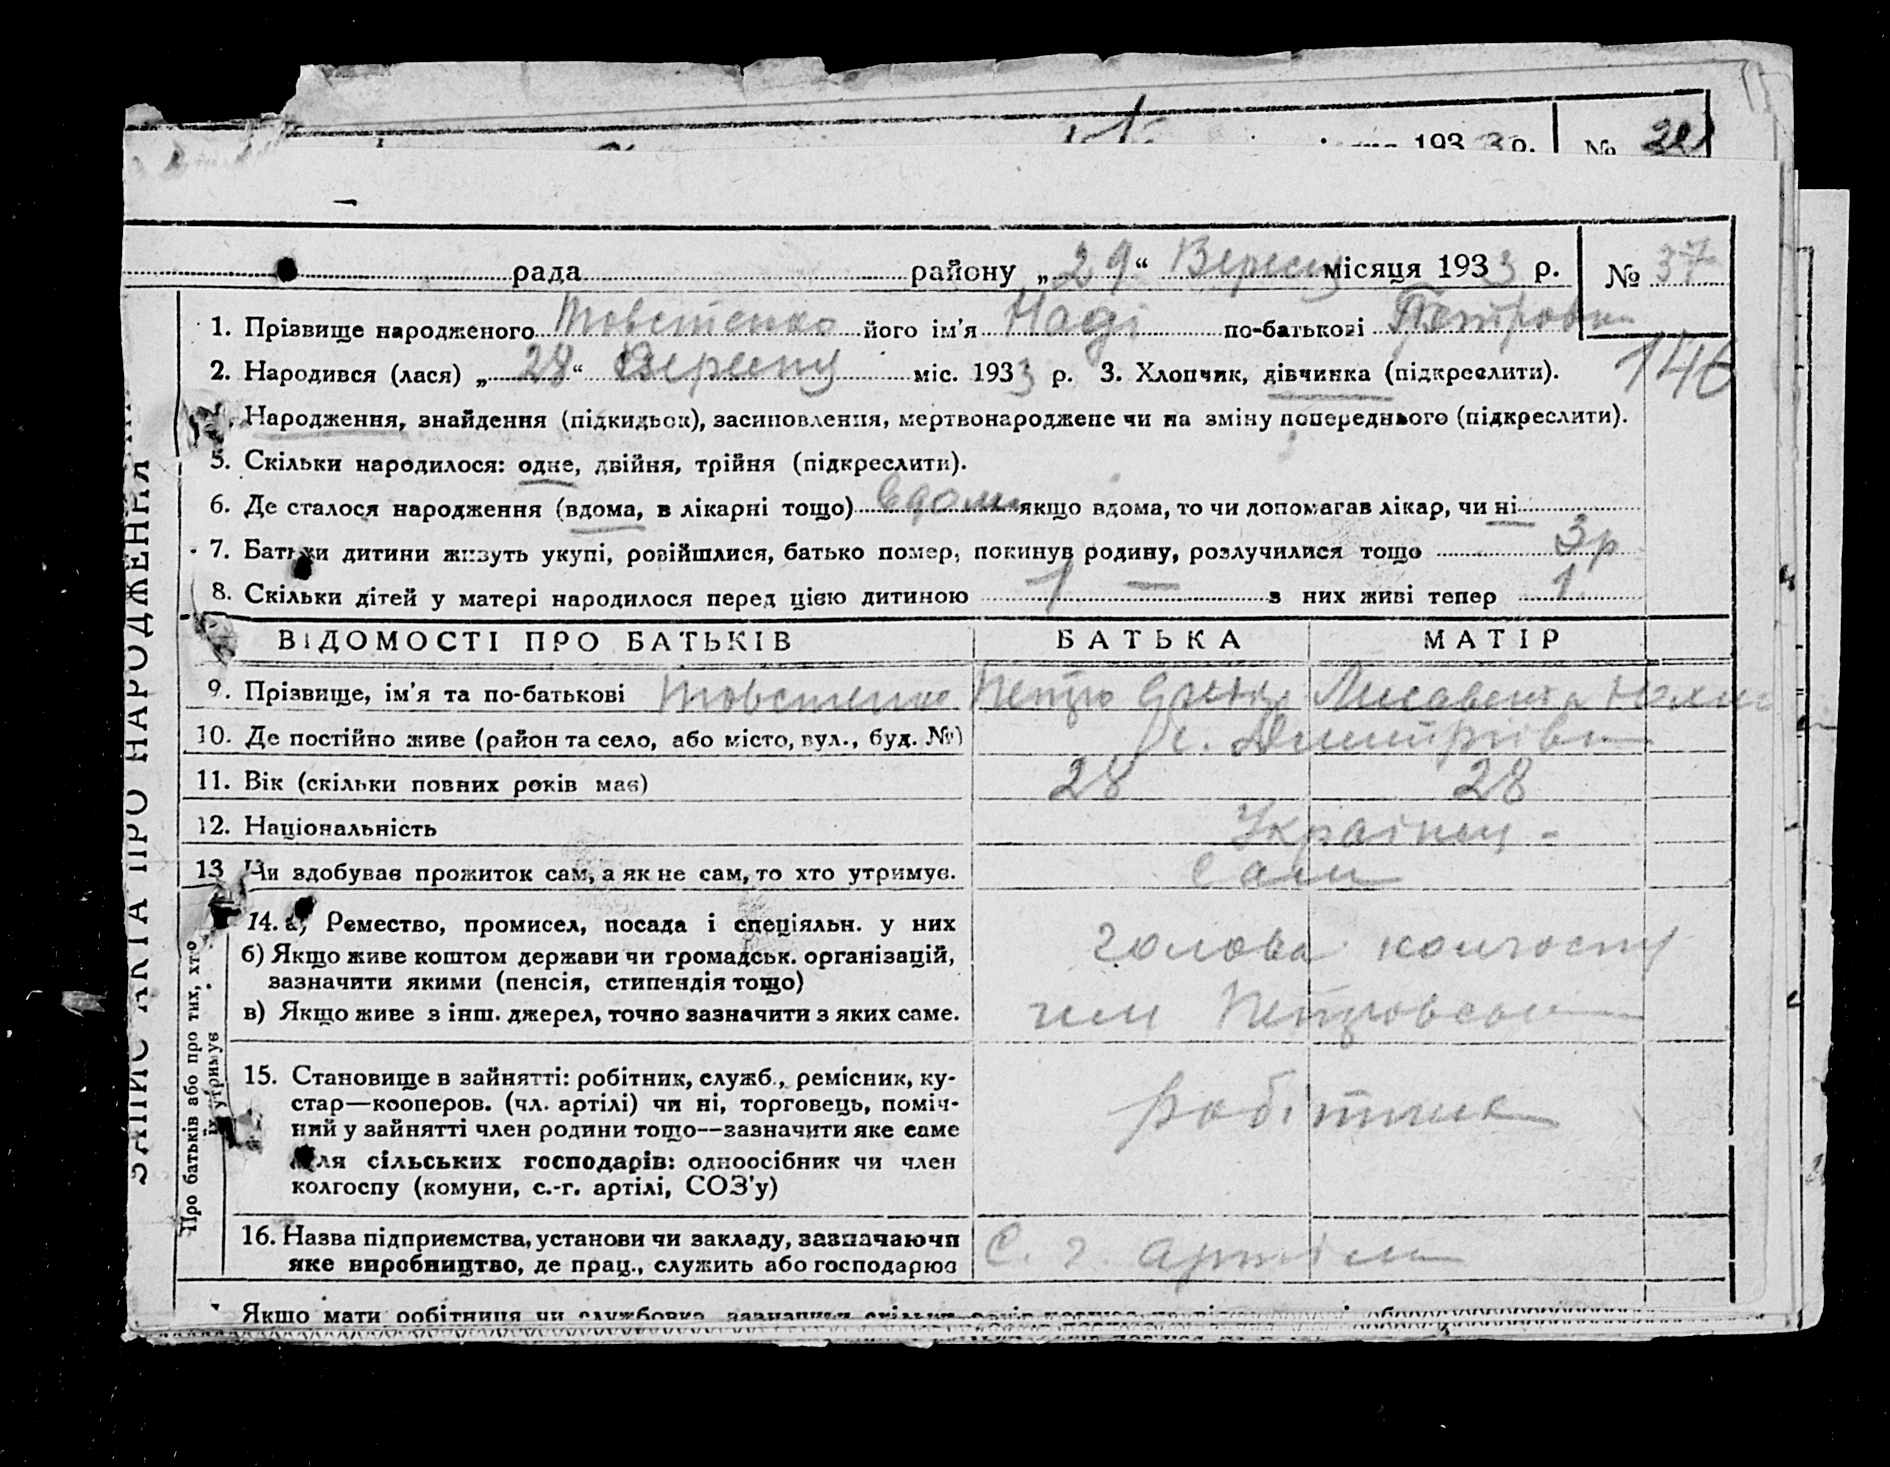 193 3 р. № 22
рада району „29“ Вересня місяця 1933 р. № 37
1. Прізвище народженого Товстенко його ім'я Наді по-батькові Петровна
146
2. Народився (лася) „28“ Вересня міс. 1933 р. 3. Хлопчик, дівчинка (підкреслити).
Народження, знайдення (підкидьок), засиновлення, мертвонароджене чи на зміну попереднього (підкреслити).
5. Скільки народилося: одне, двійня, трійня (підкреслити).
6. Де сталося народження (вдома, в лікарні тощо) вдома якщо вдома, то чи допомагав лікар, чи ні
7. Батьки дитини живуть укупі, розійшлися, батько помер, покинув родину, розлучилися тощо 3 р
8. Скільки дітей у матері народилося перед цією дитиною 1 — з них живі тепер 1
ВІДОМОСТІ ПРО БАТЬКІВ БАТЬКА МАТІР
9. Прізвище, ім'я та по-батькові Товстенко Петро Лисавета
10. Де постійно живе (район та село, або місто, вул., буд. №) с. Дмитрівка
11. Вік (скільки повних років має) 28 28
12. Національність Українец -
13 Чи здобував прожиток сам, а як не сам, то хто утримує. Сам
14. а) Ремество, промисел, посада і спеціяльн. у них голова колгоспу
б) Якщо живе коштом держави чи громадськ. організацій,
зазначити якими (пенсія, стипендія тощо)
в) Якщо живе з інш. джерел, точно зазначити з яких саме. им Петровського
15. Становище в зайнятті: робітник, служб., ремісник, ку-
стар—кооперов. (чл. артілі) чи ні, торговець, поміч-
ний у зайнятті член родини тощо—зазначити яке саме робітник
для сільських господарів: одноосібник чи член
колгоспу (комуни, с.-г. артілі, СОЗ'у)
16. Назва підприємства, установи чи закладу, зазначаючи С. г. артіль
яке виробництво, де прац., служить або господарює
Якщо мати робітниця чи службовка, зазначити скільки
ЗАПИС АКТА ПРО НАРОДЖЕННЯ
Про батьків або про тих, хто
їх утримує